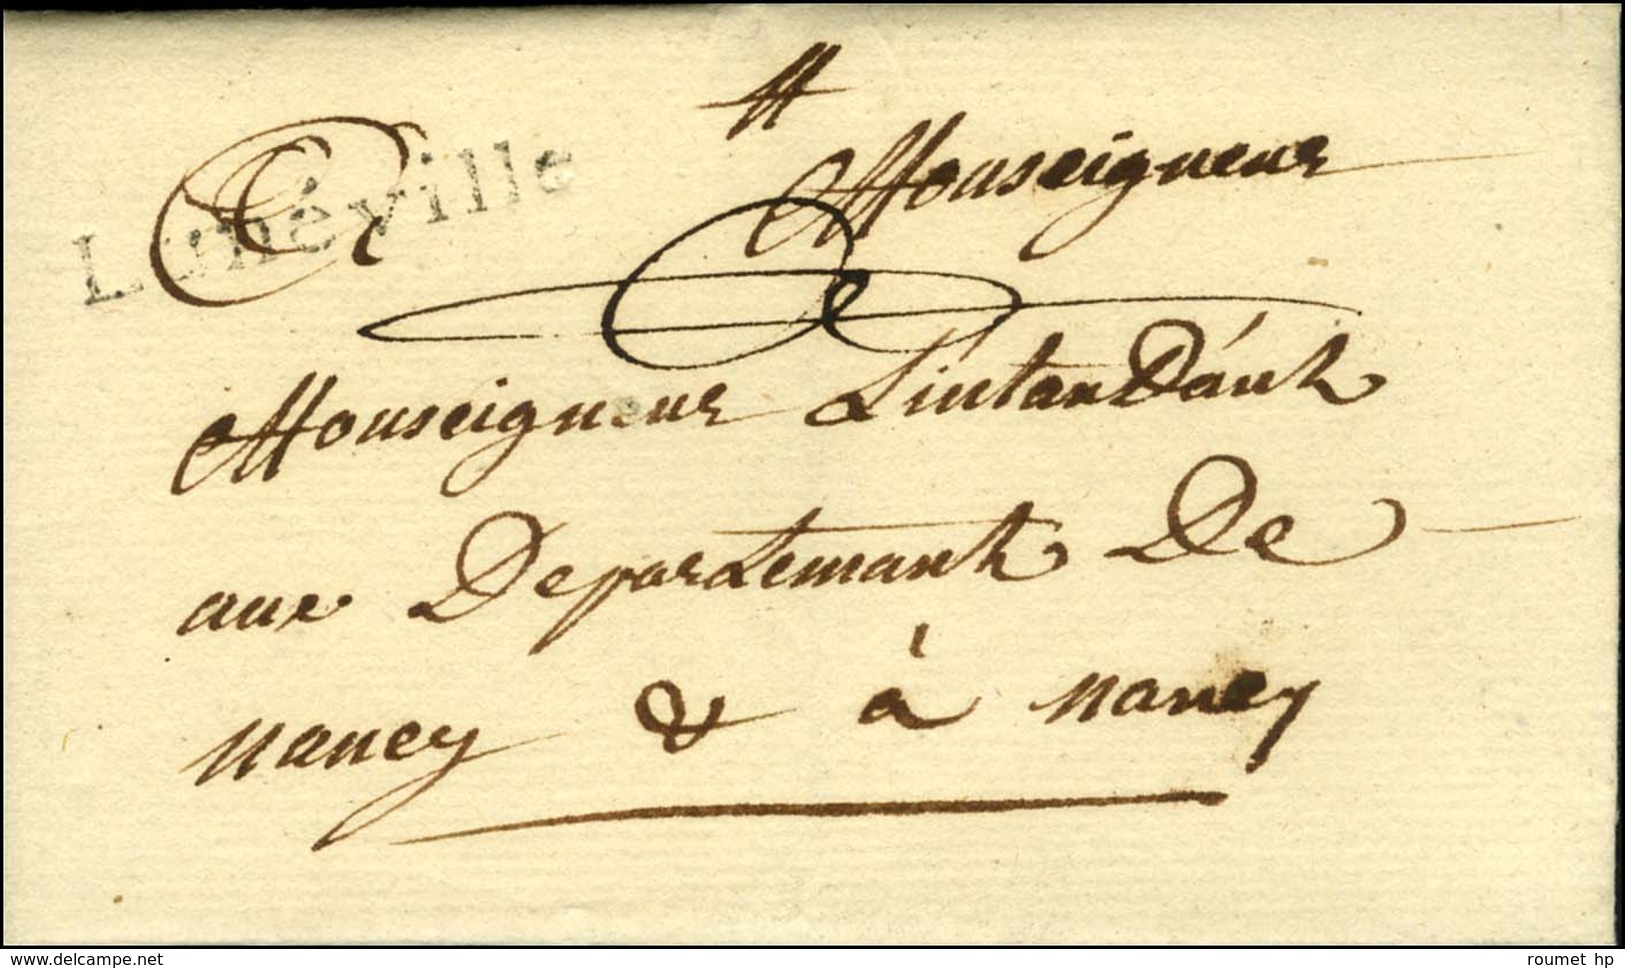 A
Lunéville
Monseigneur
Monseigneur L'intanDánt
aux Departemant De
nancy & à nancy
www.delcampe.net
roumet hp